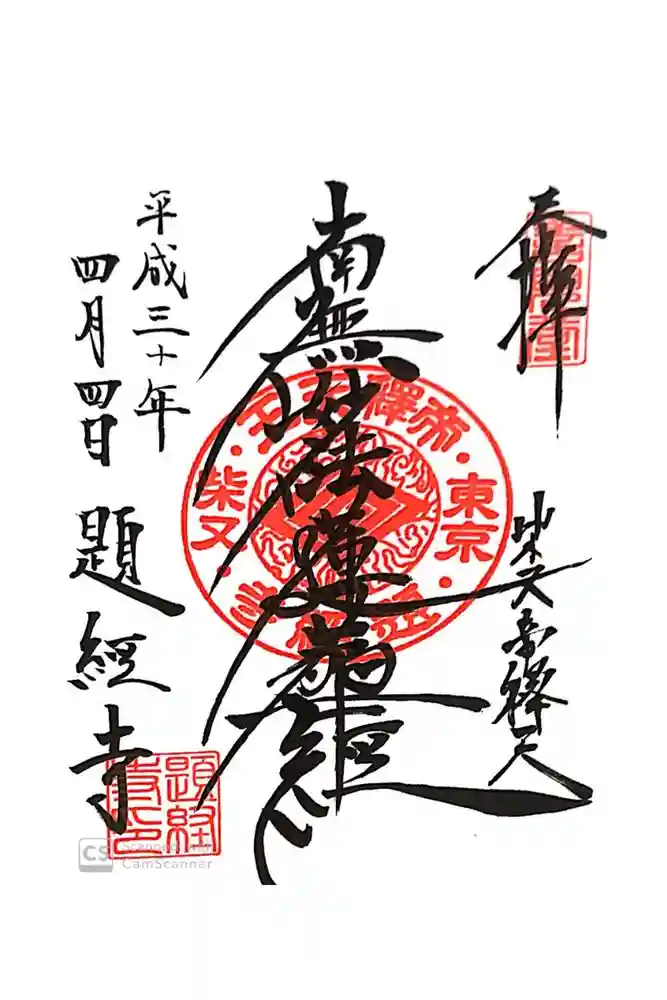 奉拝
柴又帝釋天
南無妙法蓮華経
帝釋天王
東京
柴又
題経寺
平成三十年
四月四日
題経寺
題経寺印
CS Scanned with
CamScanner